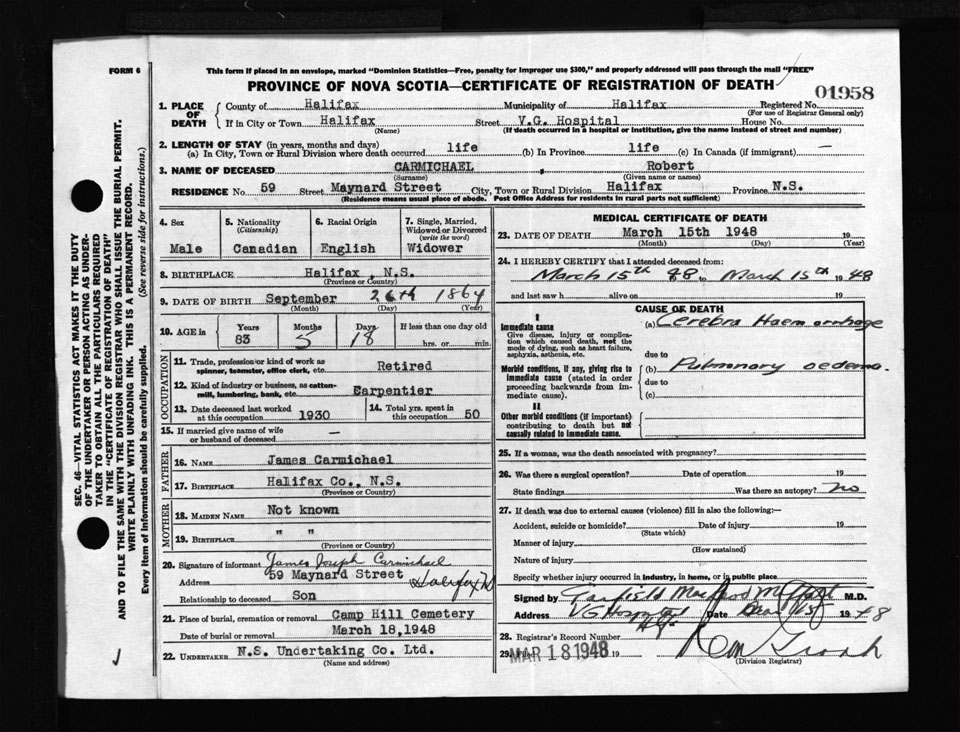 FORM 6
This form if placed in an envelope, marked "Dominion Statistics—Free, penalty for improper use $300," and properly addressed will pass through the mail "FREE"
PROVINCE OF NOVA SCOTIA—CERTIFICATE OF REGISTRATION OF DEATH
01958
1. PLACE OF DEATH
County of Halifax Municipality of Halifax Registered No.
(For use of Registrar General only)
If in City or Town Halifax Street V.G. Hospital House No.
(Name) (If death occurred in a hospital or institution, give the name instead of street and number)
2. LENGTH OF STAY (in years, months and days)
(a) In City, Town or Rural Division where death occurred life (b) In Province life (c) In Canada (if immigrant) —
3. NAME OF DECEASED CARMICHAEL Robert
(Surname) (Given name or names)
RESIDENCE No. 59 Street Maynard Street City, Town or Rural Division Halifax Province N.S.
(Residence means usual place of abode. Post Office Address for residents in rural parts not sufficient)
4. Sex
Male
5. Nationality
(Citizenship)
Canadian
6. Racial Origin
English
7. Single, Married, Widowed or Divorced
(write the word)
Widower
8. BIRTHPLACE Halifax, N.S.
(Province or Country)
9. DATE OF BIRTH September 26th 1864
(Month) (Day) (Year)
10. AGE in
Years Months Days If less than one day old
83 5 18 hrs. or min.
OCCUPATION
11. Trade, profession or kind of work as spinner, teamster, office clerk, etc. Retired
12. Kind of industry or business, as cotton-mill, lumbering, bank, etc. Carpentier
13. Date deceased last worked at this occupation 1930
14. Total yrs. spent in this occupation 50
15. If married give name of wife or husband of deceased —
FATHER
16. NAME James Carmichael
17. BIRTHPLACE Halifax Co., N.S.
(Province or Country)
MOTHER
18. MAIDEN NAME Not known
19. BIRTHPLACE " "
(Province or Country)
20. Signature of informant James Joseph Carmichael
Address 59 Maynard Street Halifax NS
Relationship to deceased Son
21. Place of burial, cremation or removal Camp Hill Cemetery
Date of burial or removal March 18,1948
22. UNDERTAKER N.S. Undertaking Co. Ltd.
(Name and address)
MEDICAL CERTIFICATE OF DEATH
23. DATE OF DEATH March 15th 1948 19
(Month) (Day) (Year)
24. I HEREBY CERTIFY that I attended deceased from:
March 15th 48 to March 15th 1948
and last saw h alive on 19
CAUSE OF DEATH
I
Immediate cause
Give disease, injury or complication which caused death, not the mode of dying, such as heart failure, asphyxia, asthenia, etc.
(a) Cerebra Haemorrhage
due to
Morbid conditions, if any, giving rise to immediate cause (stated in order proceeding backwards from immediate cause).
(b) Pulmnary oedema.
due to
(c)
II
Other morbid conditions (if important) contributing to death but not causally related to immediate cause.
25. If a woman, was the death associated with pregnancy?
26. Was there a surgical operation? Date of operation 19
State findings Was there an autopsy? no
27. If death was due to external causes (violence) fill in also the following:—
Accident, suicide or homicide? Date of injury 19
(State which)
Manner of injury
(How sustained)
Nature of injury
Specify whether injury occurred in industry, in home, or in public place
Signed by Garfield M.D.
Address VG Hospital Hfx Date 1948
28. Registrar's Record Number
29. MAR 18 1948 19
(Division Registrar)
SEC. 46—VITAL STATISTICS ACT MAKES IT THE DUTY
OF THE UNDERTAKER OR PERSON ACTING AS UNDER-
TAKER TO OBTAIN ALL THE PARTICULARS REQUIRED
IN THE "CERTIFICATE OF REGISTRATION OF DEATH"
AND TO FILE THE SAME WITH THE DIVISION REGISTRAR WHO SHALL ISSUE THE BURIAL PERMIT.
WRITE PLAINLY WITH UNFADING INK. THIS IS A PERMANENT RECORD.
Every item of information should be carefully supplied. (See reverse side for instructions.)